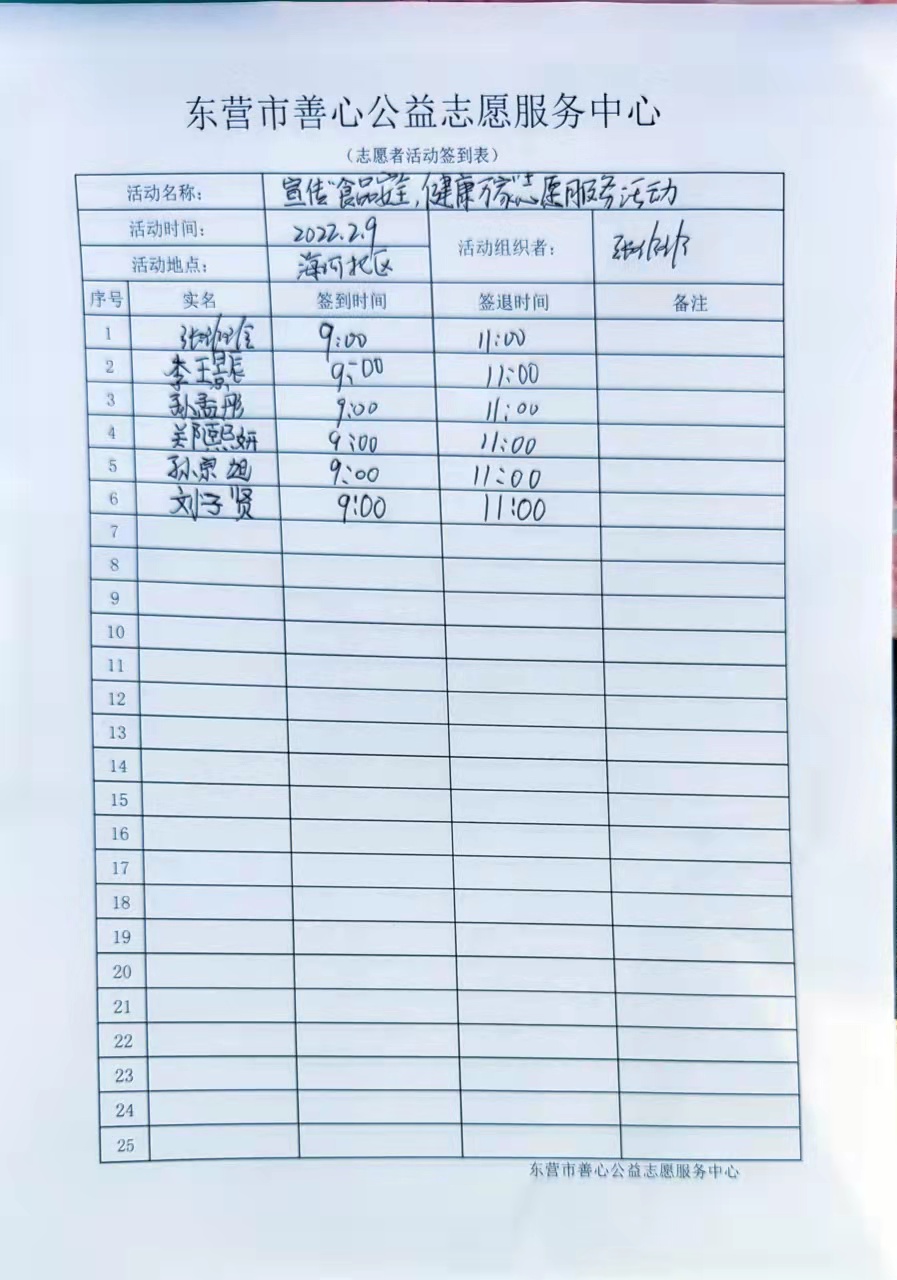 东营市善心公益志愿服务中心
（志愿者活动签到表）
活动名称： 宣传"食品安全，健康万家"志愿服务活动
活动时间： 2022.2.9
活动组织者：
活动地点： 海河北区
序号 实名 签到时间 签退时间 备注
1 9:00 11:00
2 李王景辰 9:00 11:00
3 孙孟彤 9:00 11:00
4 郑熙妍 9:00 11:00
5 孙京旭 9:00 11:00
6 刘子贤 9:00 11:00
7
8
9
10
11
12
13
14
15
16
17
18
19
20
21
22
23
24
25
东营市善心公益志愿服务中心